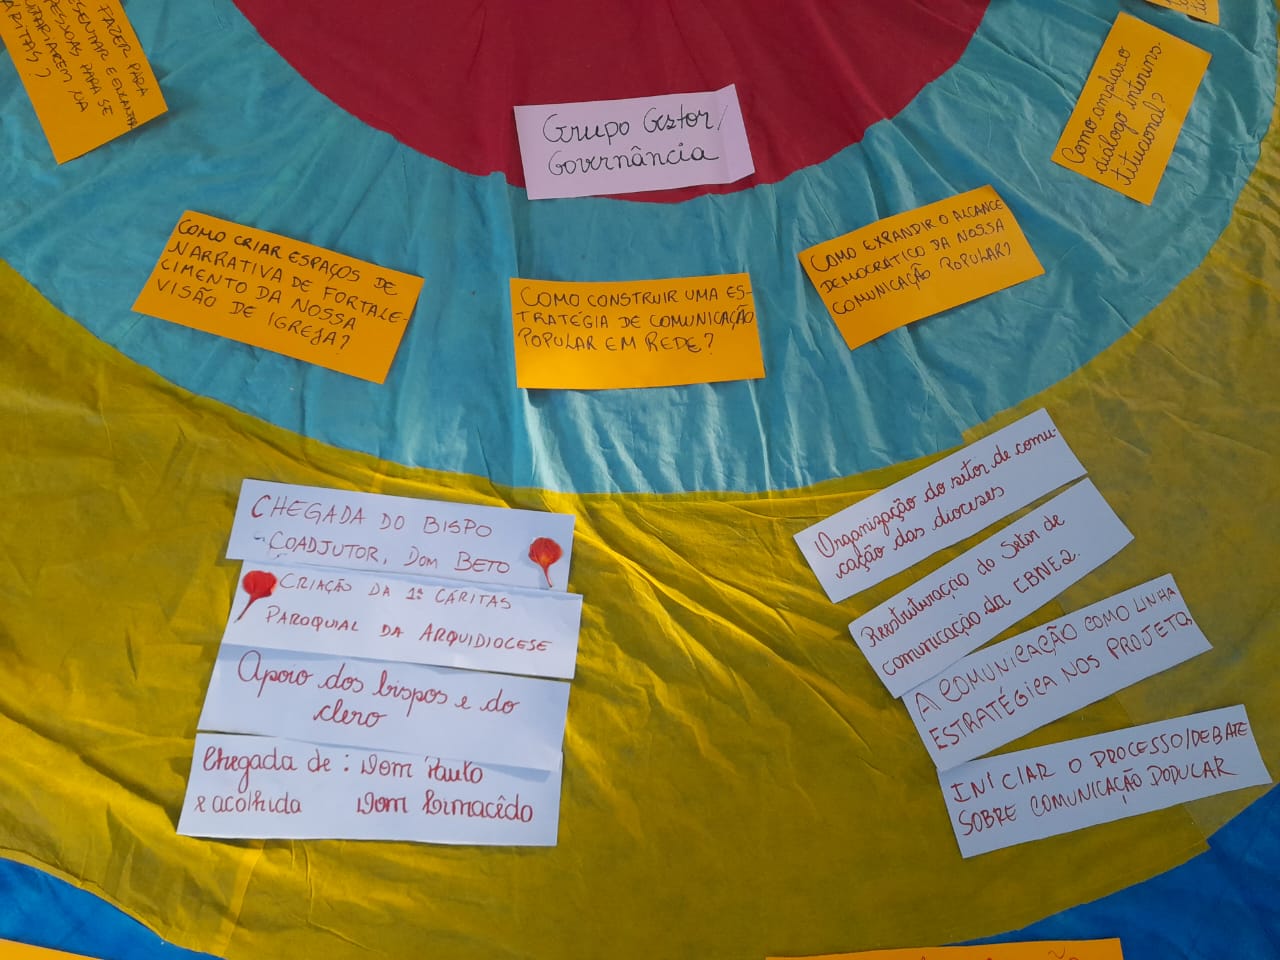 FAZER PARA
SENTAR E ENCANTAR
PESSOAS PARA SE
NA
CÁRITAS?
Grupo Gestor/
Governância
Como ampliar o
diálogo interins-
titucional?
COMO CRIAR ESPAÇOS DE
NARRATIVA DE FORTALE-
CIMENTO DA NOSSA
VISÃO DE IGREJA?
COMO CONSTRUIR UMA ES-
TRATÉGIA DE COMUNICAÇÃO
POPULAR EM REDE?
COMO EXPANDIR O ALCANCE
DEMOCRATICO DA NOSSA
COMUNICAÇÃO POPULAR?
CHEGADA DO BISPO
COADJUTOR, DOM BETO
CRIAÇÃO DA 1ª CÁRITAS
PAROQUIAL DA ARQUIDIOCESE
Apoio dos bispos e do
clero
Chegada de: Dom Paulo
e acolhida Dom Limacêdo
Organização do setor de comu-
cação das dioceses
Reestruturação do Setor de
comunicação da CBNE2.
A COMUNICAÇÃO COMO LINHA
ESTRATÉGICA NOS PROJETOS
INICIAR O PROCESSO/DEBATE
SOBRE COMUNICAÇÃO POPULAR